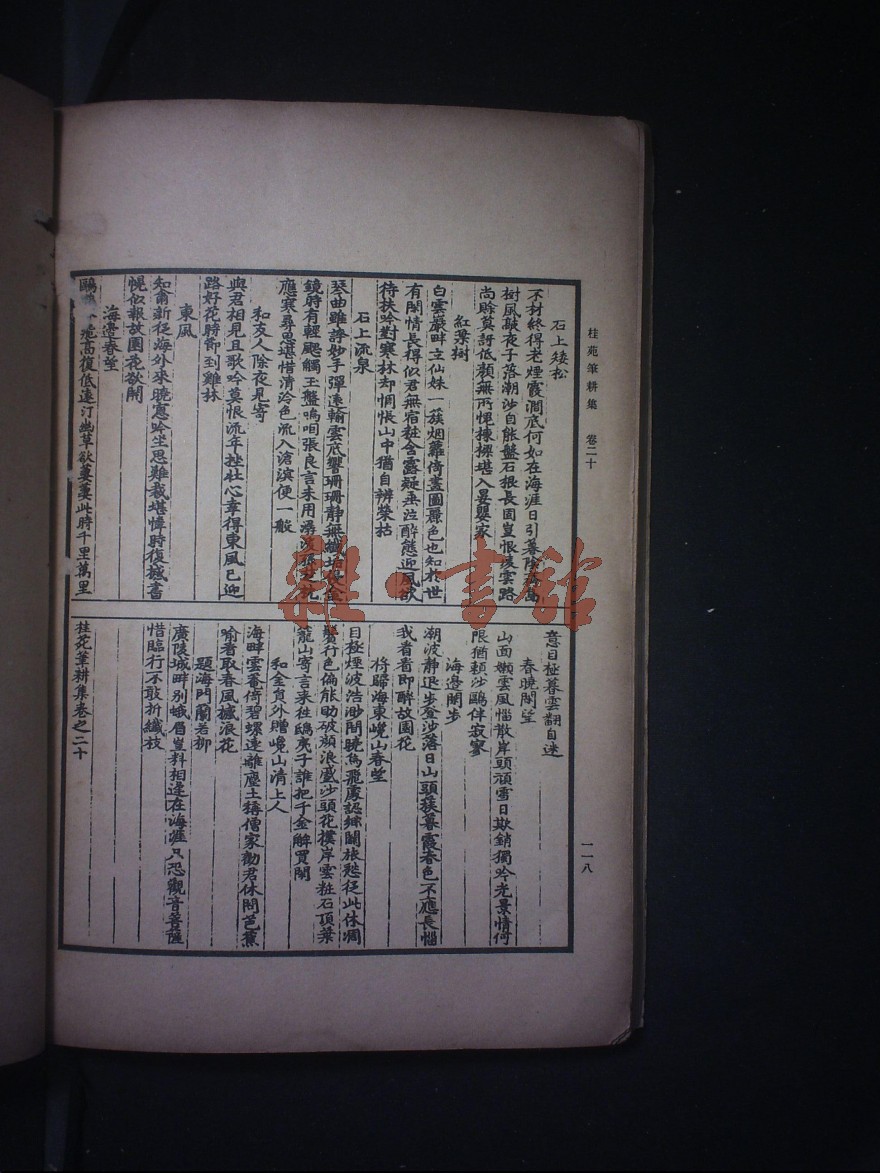 桂苑筆耕集 卷二十
石上矮松
不材終得老煙霞澗底何如在海涯日引暮陰齊島
樹風敲夜子落潮沙自能盤石根長固豈恨凌雲路
尚賖莫訝低顔無所愧棟樑堪入晏嬰家
紅葉樹
白雲巖畔立仙姝一簇烟蘿倚畫圖麗色也知於世
有閑情長得似君無宿粧含露疑垂泣醉態迎風欲
待扶吟對寒林却惆悵山中猶自辨榮枯
石上流泉
琴曲雖誇妙手彈遠輸雲底響珊珊靜無纖垢
鏡時有輕颸觸玉盤嗚咽張良言未用潺湲孫楚枕
應寒尋思堪惜清泠色流入滄溟便一般
和友人除夜見寄
與君相見且歌吟莫恨流年挫壯心幸得東風已迎
路好花時節到雞林
東風
知爾新從海外來曉窻吟坐思難裁堪憐時復撼書
幌似報故園花欲開
海邊春望
鷗 高復低遠汀幽草欲萋萋此時千里萬里
意目極暮雲翻自迷
春曉閑望
山面嬾雲風惱散岸頭頑雪日欺銷獨吟光景情何
限猶賴沙鷗伴寂寥
海邊閑步
潮波靜退步登沙落日山頭簇暮霞春色不應長惱
我看看即醉故園花
將歸海東巉山春望
目極煙波浩渺閒曉烏飛處認鄉關旅愁從此休凋
鬢行色偏能助破顔浪蹙沙頭花撲岸雲粧石頂葉
籠山寄言來往鴟夷子誰把千金解買閑
和金員外贈巉山清上人
海畔雲菴倚碧螺遠離塵土稱僧家勸君休問芭蕉
喻看取春風撼浪花
題海門蘭若柳
廣陵城畔別蛾眉豈料相逢在海涯只恐觀音菩薩
惜臨行不敢折纖枝
桂苑筆耕集卷之二十
一一八